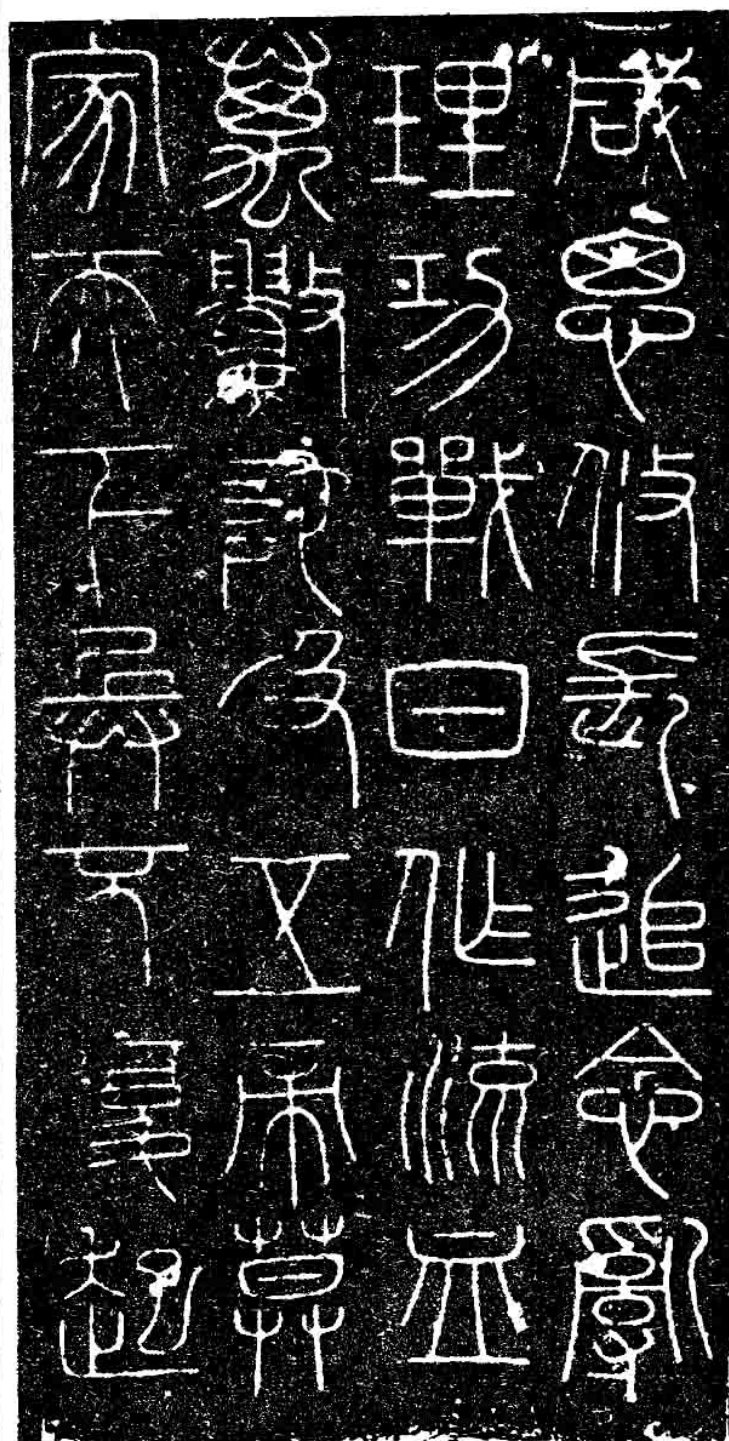 咸思攸長追念亂
理功戰日作流血
萬數陀及五帝莫
家天下兵不復起